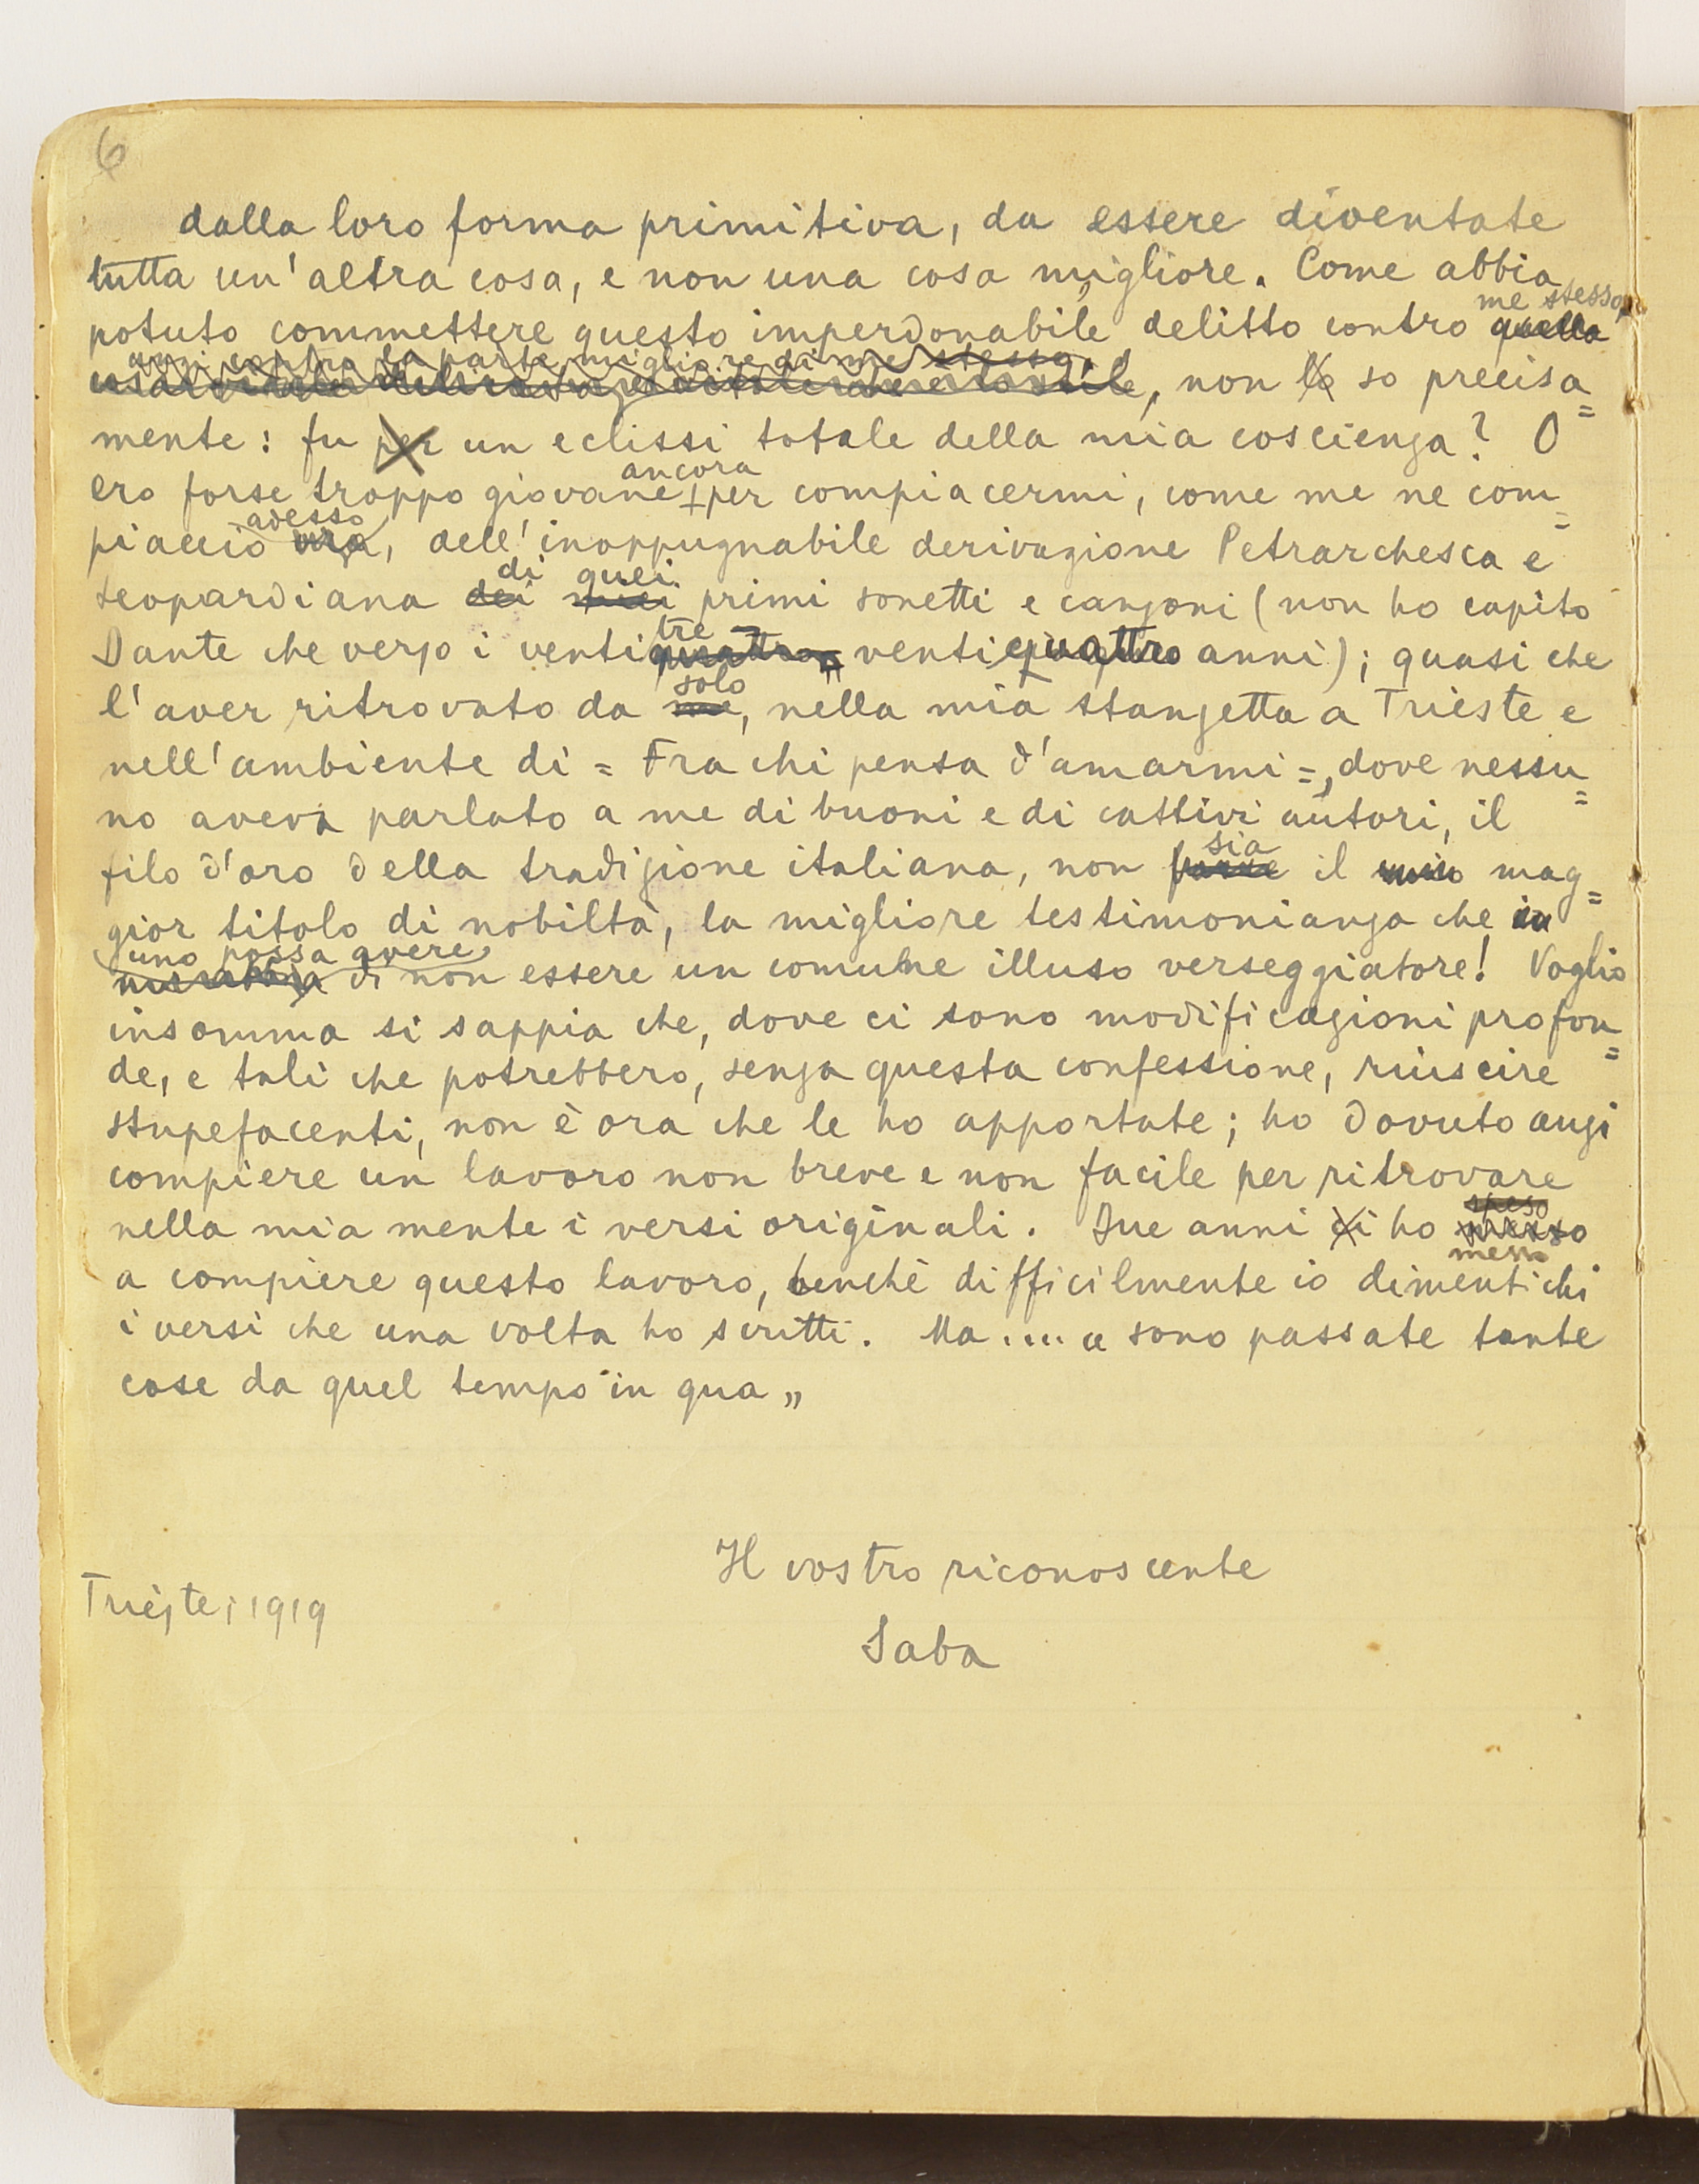 6
dalla loro forma primitiva, da essere diventate
tutta un'altra cosa, e non una cosa migliore. Come abbia
me stesso,
potuto commettere questo imperdonabile delitto contro quella
anzi contro la parte migliore di me stesso,
, non lo so precisa=
mente: fu per un eclissi totale della mia coscienza? O
ancora
ero forse troppo giovane per compiacermi, come me ne com=
adesso
piaccio ora, dell'inoppugnabile derivazione Petrarchesca e
di quei
leopardiana dei miei primi sonetti e canzoni (non ho capito
tre -
Dante che verso i ventiquattro, ventiquattro anni); quasi che
solo
l'aver ritrovato da me, nella mia stanzetta a Trieste e
nell'ambiente di = Fra chi pensa d'amarmi =, dove nessu=
no aveva parlato a me di buoni e di cattivi autori, il
sia
filo d'oro della tradizione italiana, non fosse il mio mag=
gior titolo di nobiltà, la migliore testimonianza che io
uno possa avere
di non essere un comune illuso verseggiatore! Voglio
insomma si sappia che, dove ci sono modificazioni profon=
de, e tali che potrebbero, senza questa confessione, riuscire
stupefacenti, non è ora che le ho apportate; ho dovuto anzi
compiere un lavoro non breve e non facile per ritrovare
speso
nella mia mente i versi originali. Due anni ci ho messo
messo
a compiere questo lavoro, benchè difficilmente io dimentichi
i versi che una volta ho scritti. Ma .... e sono passate tante
cose da quel tempo in qua „
Il vostro riconoscente
Trieste, 1919
Saba